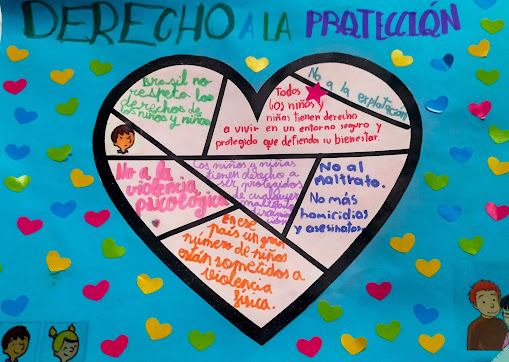 DERECHO A LA PROTECCIÓN
Brasil no
respeta los
derechos de
los niños y niñas
Todos
los niños y
niñas tienen derecho
a vivir en un entorno seguro y
protegido que defienda su bienestar.
No a la explotación
No a la
violencia
psicológica
Los niños y niñas
tienen derecho a
ser protegidos
de cualquier
maltrato
No al
maltrato.
No más
homicidios
y asesinatos
En ese
país un gran
número de niños
están sometidos a
violencia
física.